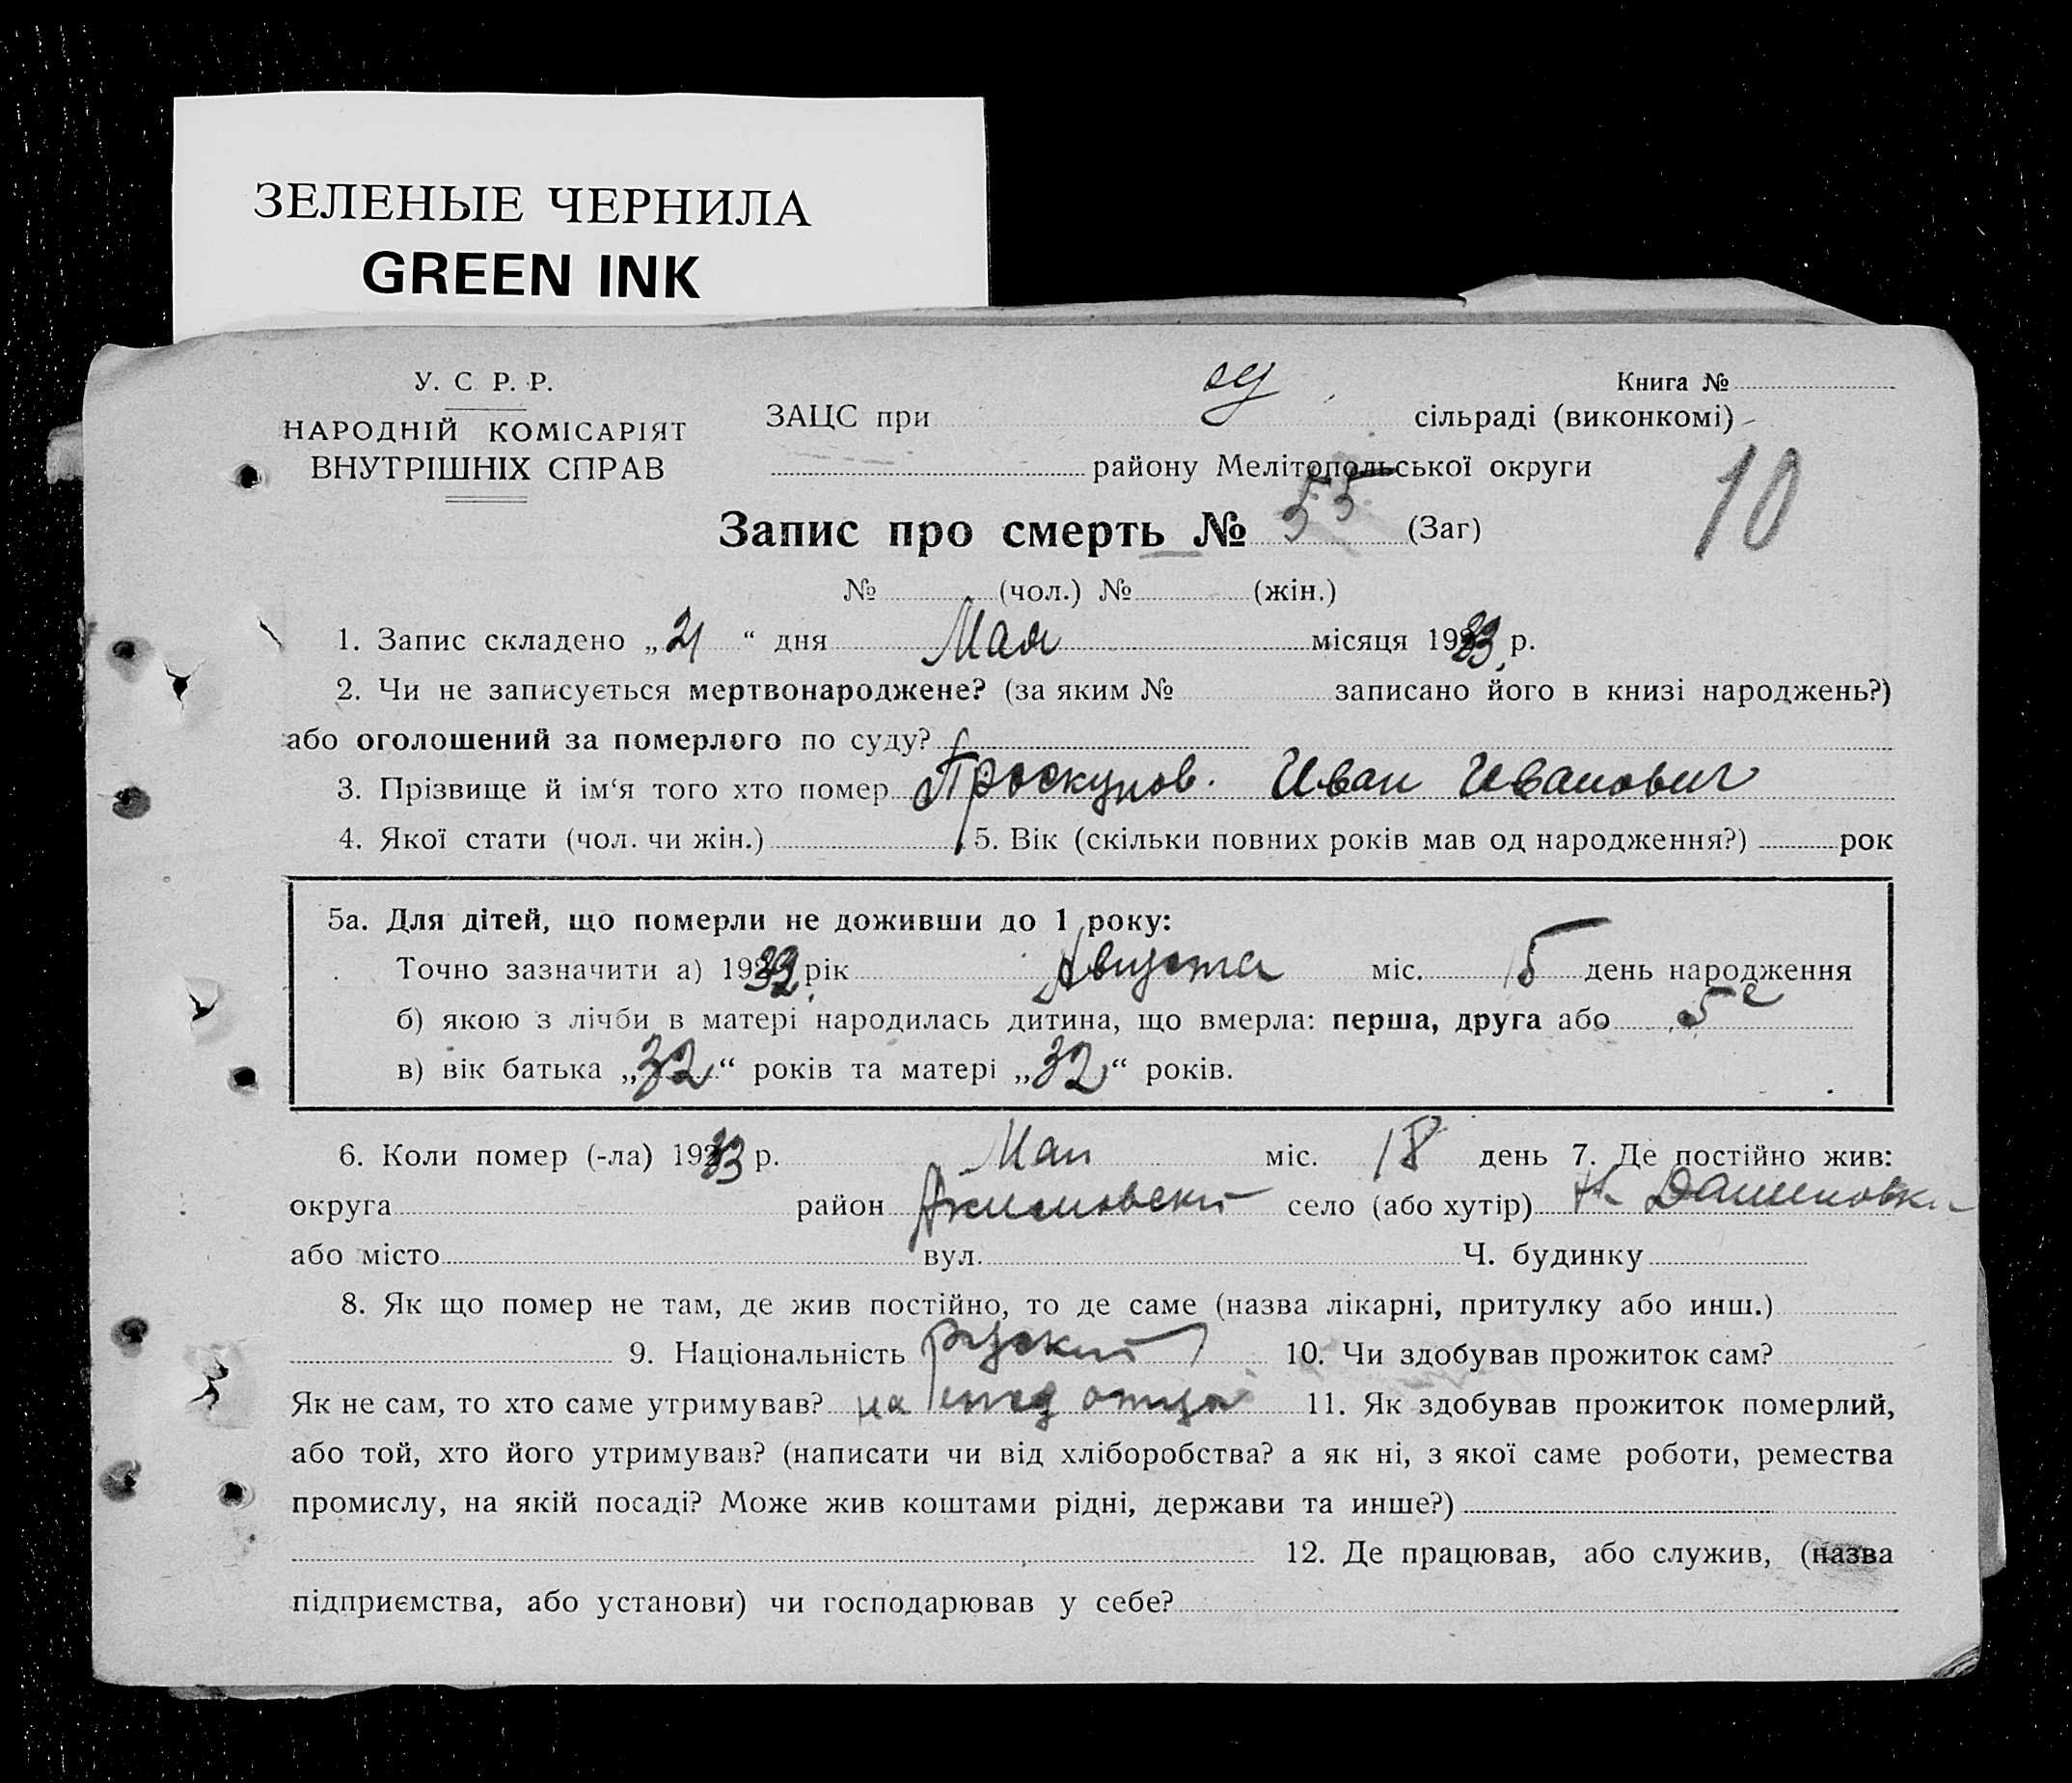 ЗЕЛЕНЫЕ ЧЕРНИЛА
GREEN INK
У. С. Р. Р.
НАРОДНІЙ КОМІСАРІЯТ
ВНУТРІШНІХ СПРАВ
Книга №
ЗАЦС при сільраді (виконкомі)
району Мелітопольської округи
10
Запис про смерть № 55 (Заг)
№ (чол.) № (жін.)
1. Запис складено „21 “ дня Мая місяця 1933 р.
2. Чи не записується мертвонароджене? (за яким № записано його в книзі народжень?)
або оголошений за померлого по суду?
3. Прізвище й ім‘я того хто помер Проскунов. Иван Иванович
4. Якої стати (чол. чи жін.) 5. Вік (скільки повних років мав од народження?) рок
5а. Для дітей, що померли не доживши до 1 року:
Точно зазначити а) 1932 рік Августа міс. 15 день народження
б) якою з лічби в матері народилась дитина, що вмерла: перша, друга або 5е
в) вік батька „32“ років та матері „32“ років.
6. Коли помер (-ла) 1933 р. Маи міс. 18 день 7. Де постійно жив:
округа район Акимовский село (або хутір) Н. Даниловка
або місто вул. Ч. будинку
8. Як що помер не там, де жив постійно, то де саме (назва лікарні, притулку або инш.)
9. Національність руский 10. Чи здобував прожиток сам?
Як не сам, то хто саме утримував? на ижд отца 11. Як здобував прожиток померлий,
або той, хто його утримував? (написати чи від хліборобства? а як ні, з якої саме роботи, ремества
промислу, на якій посаді? Може жив коштами рідні, держави та инше?)
12. Де працював, або служив, (назва
підприємства, або установи) чи господарював у себе?